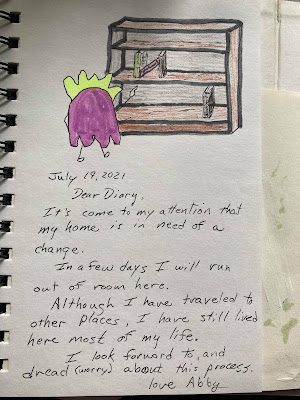 July 19, 2021
Dear Diary,
It's come to my attention that
my home is in need of a
change.
In a few days I will run
out of room here.
Although I have traveled to
other places, I have still lived
here most of my life.
I look forward to, and
dread (worry) about this process.
love Abby